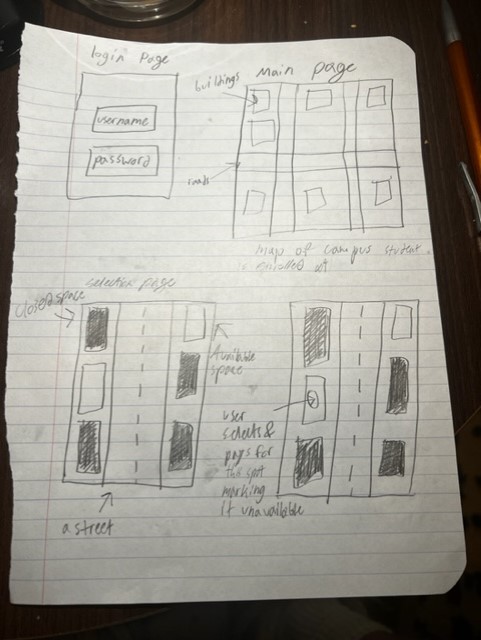 login Page
username
password
Main page
buildings
roads
Map of campus student
is enrolled at
selection page
closed space
Available
space
a street
user
selects &
pays for
the spot
marking
it unavailable